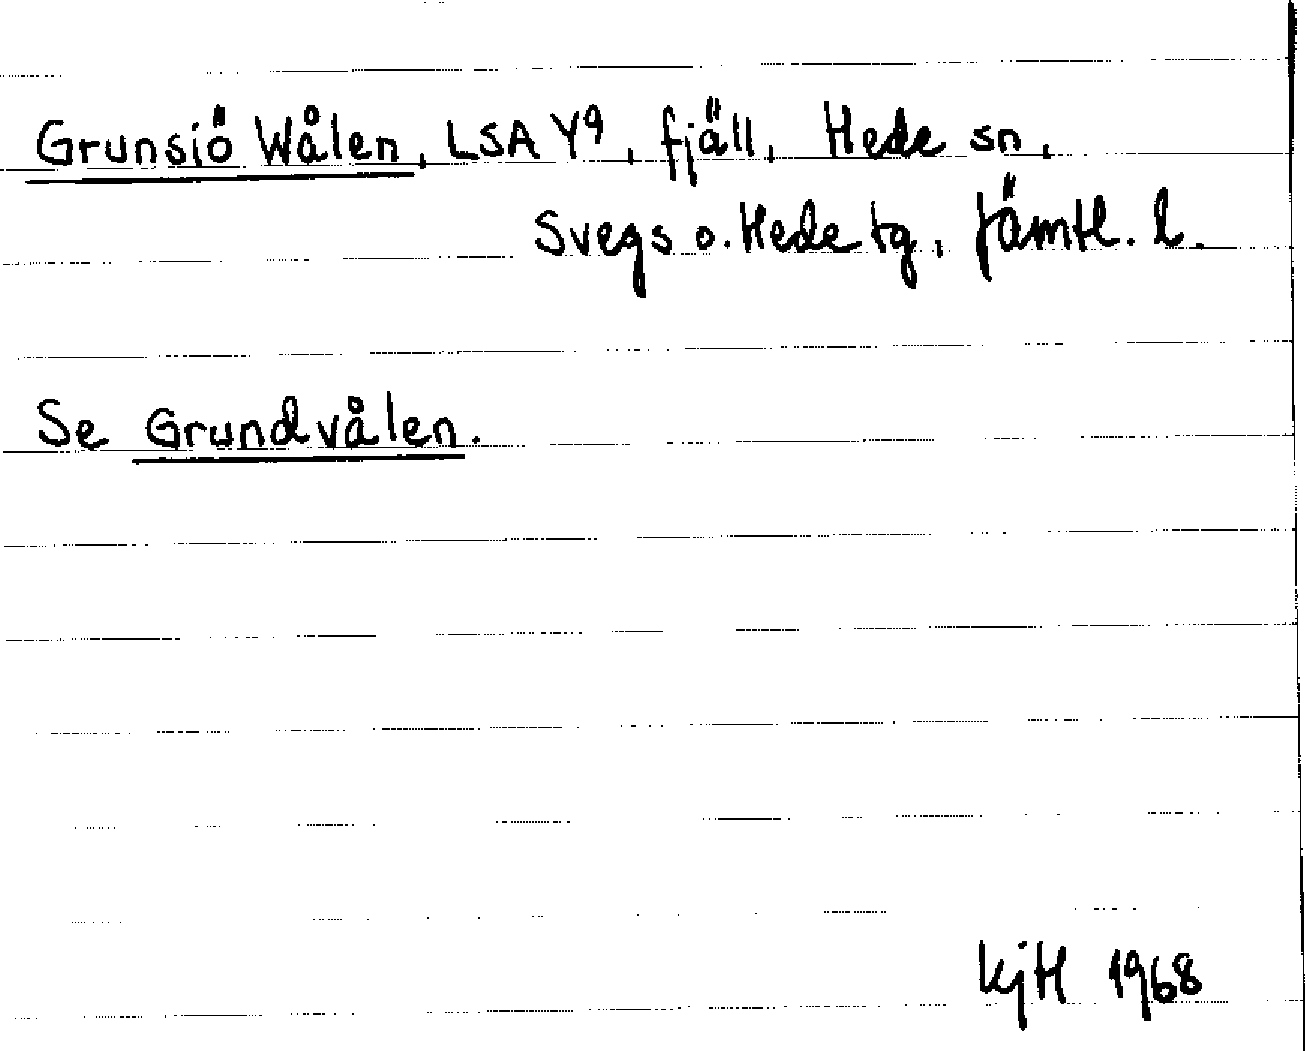 Grunsiö Wålen, LSA Y9, fjäll, Hede sn,
Svegs o. Hede tg, Jämtl. l.
Se Grundvålen.
KjH 1968